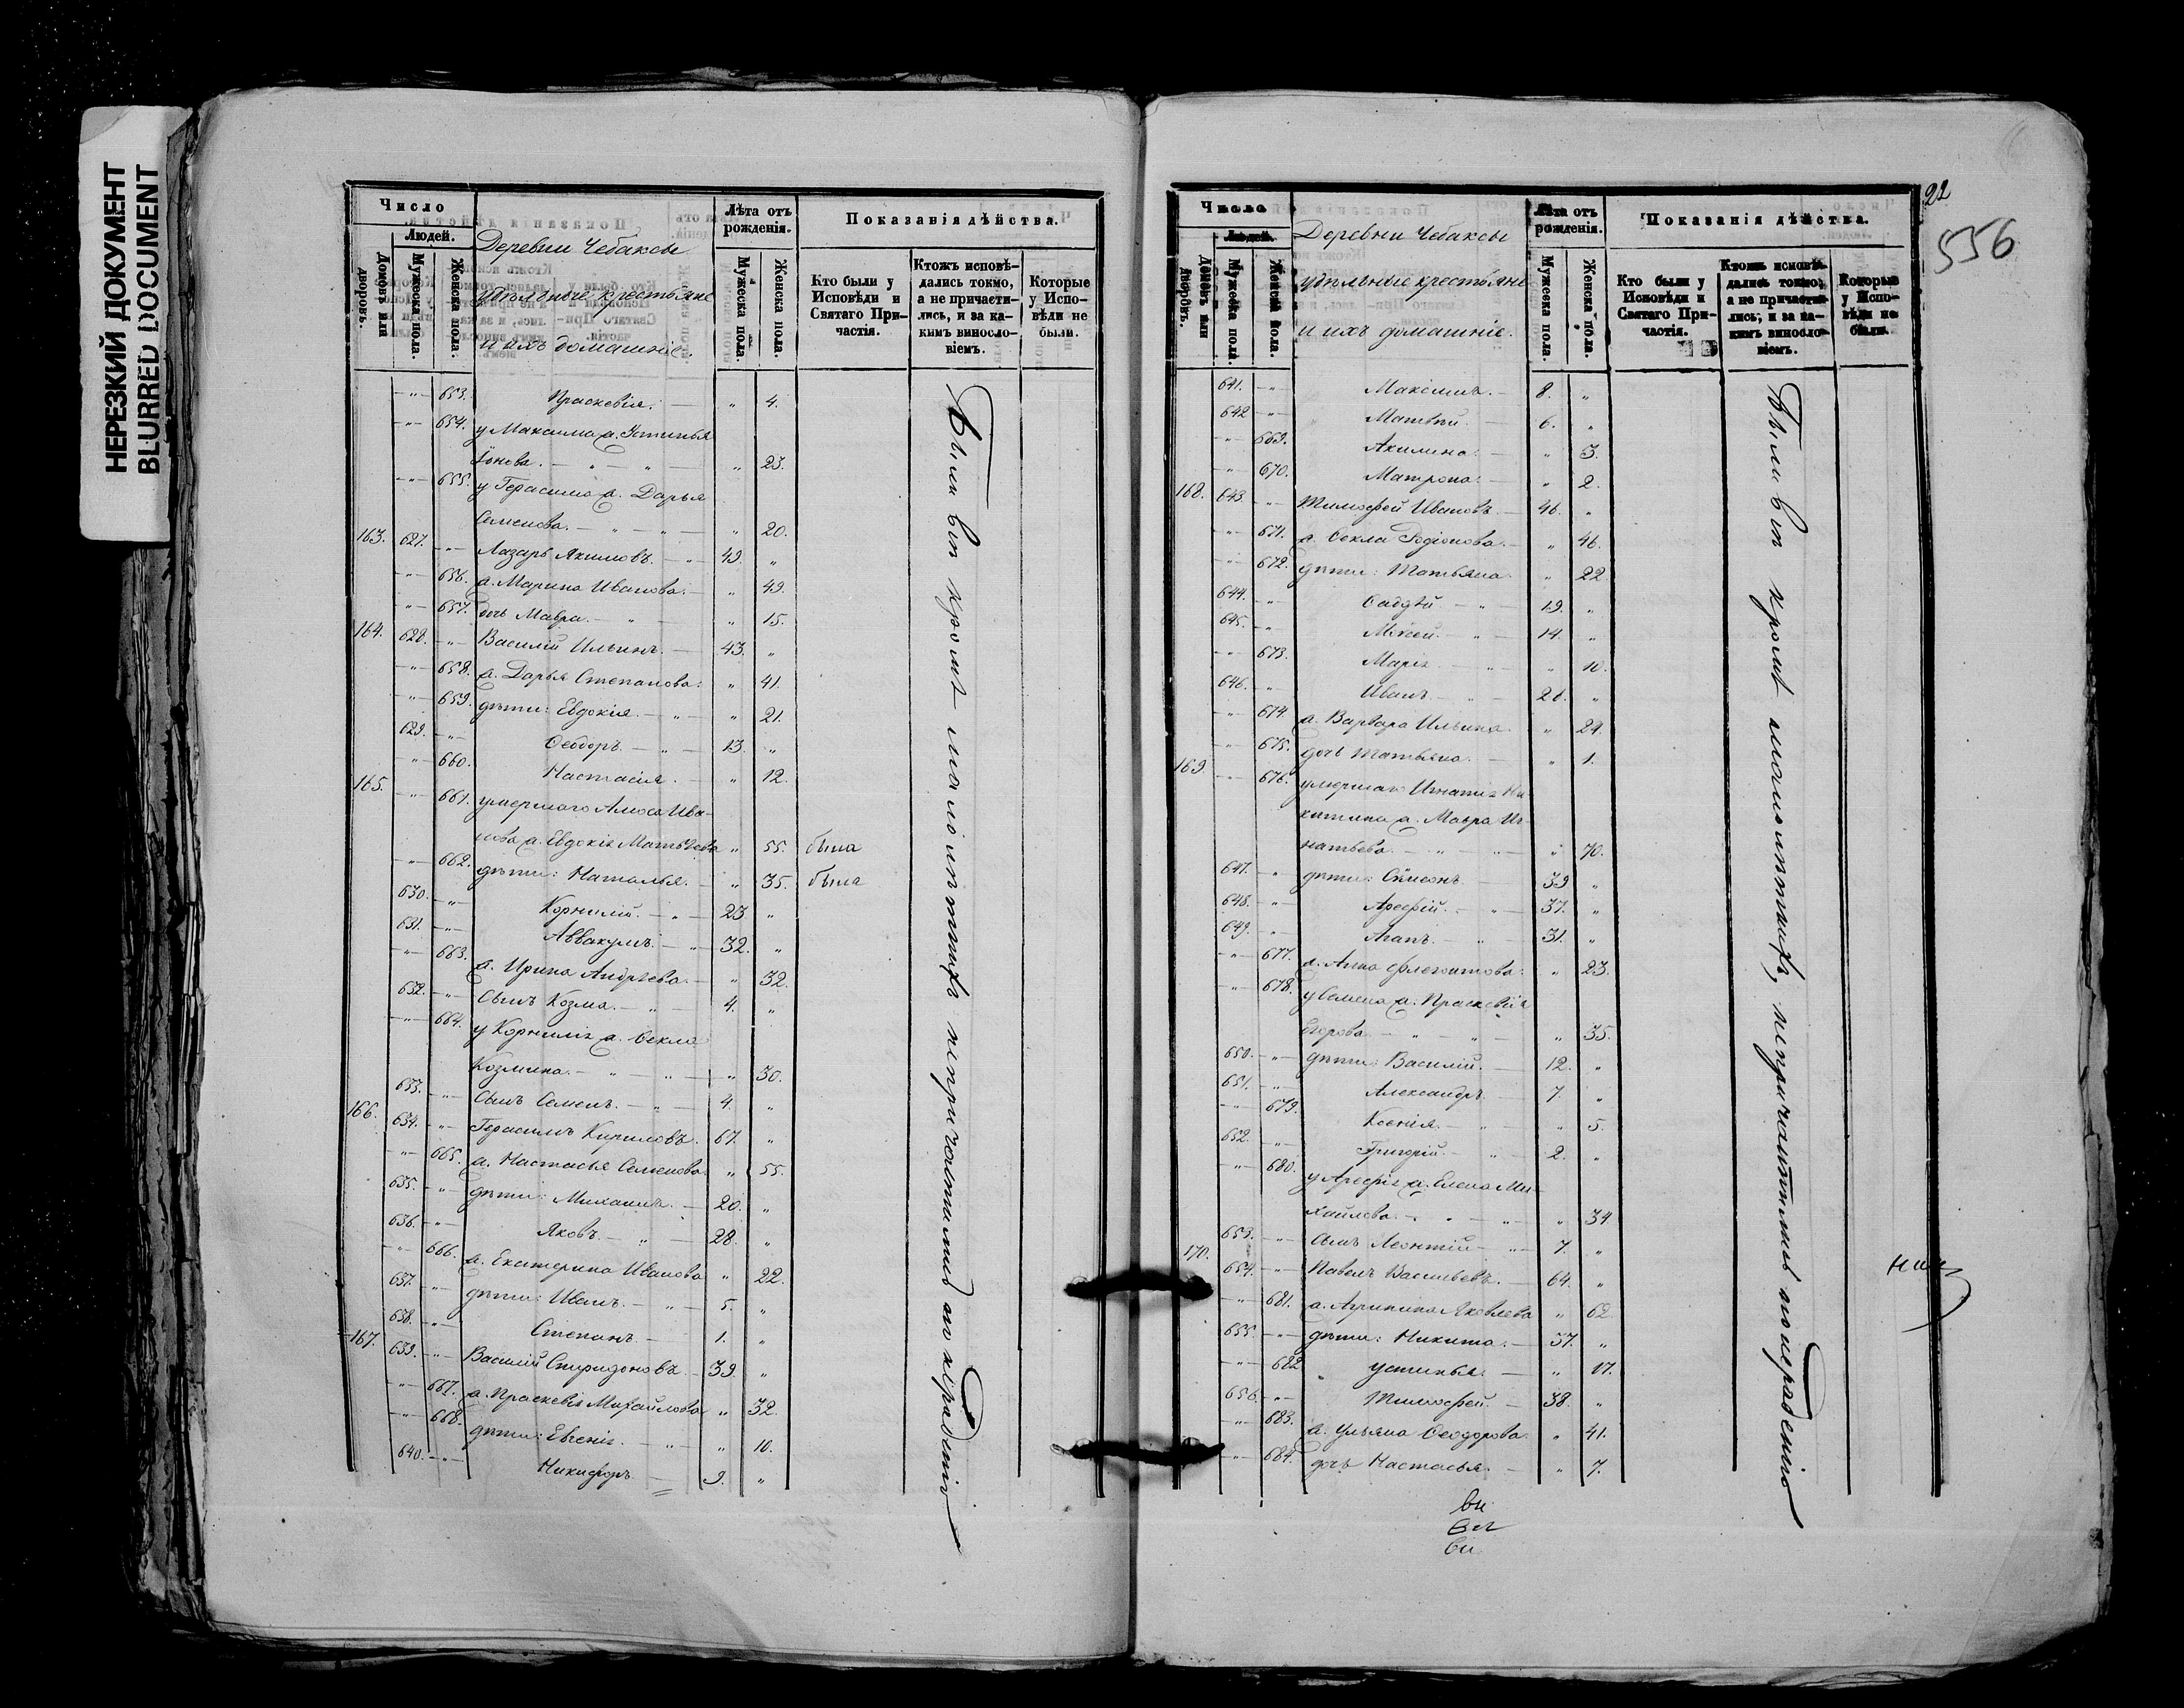 НЕРЕЗКИЙ ДОКУМЕНТ
BLURRED DOCUMENT
Число
Людей.
Домовъ или дворовъ.
Мужеска пола.
Женска пола.
Деревни Чебаксы
удѣльные крестьяне
и ихъ домашніе.
Лѣта отъ рожденія.
Мужеска пола.
Женска пола.
Показанія дѣйства.
Кто были у Исповѣди и Святаго Причастія.
Ктожъ исповѣдались токмо, а не причастились, и за какимъ винословіемъ.
Которые у Исповѣди не были.
-"- 653. Праскевія. — " 4.
-"- 654. у Максима ж. Устинья
Іонова. — " — " — " 23.
-"- 655. у Герасима ж. Дарья
Семенова. — " — " 20.
163. 627. -"- Лазарь Якимовъ. — 49. "
-"- 656. ж. Марина Иванова. — " 49.
-"- 657. дочь Мавра. — " — " 15.
164. 628. -"- Василій Ильинъ. — 43. "
-"- 658. ж. Дарья Степанова. " 41.
-"- 659. дѣти: Евдокія. — " — " 21.
629. -"- Ѳеодоръ. — " — 13. "
-"- 660. Настасія. — " 12.
165. -"- 661. умершаго Амоса Ива-
нова ж. Евдокія Матвѣева " 55. была
-"- 662. дѣти: Наталья. — " 35. была
630. -"- Корнилій. — " — 23 "
631. -"- Аввакумъ. — " — 32. "
-"- 663. ж. Ирина Андрѣева. — " 32.
632. -"- Сынъ Козма. — " — 4. "
-"- 664. у Корнилія ж. Ѳекла
Козмина. — " — " — " 30.
633. -"- Сынъ Семенъ. — " — 4. "
166. 634. -"- Герасимъ Кириловъ. 67. "
-"- 665. ж. Настасья Семенова. " 55.
635. -"- дѣти: Михаилъ. — 20. "
636. -"- Яковъ. — " — 28. "
-"- 666. ж. Екатерина Иванова " 22.
637. -"- дѣти: Иванъ. — " — 5. "
638. -"- Степанъ. — 1. "
167. 639. -"- Василій Спиридоновъ. — 39. "
-"- 667. ж. Праскевія Михайлова " 32.
-"- 668. дѣти: Евгенія. — " — " 10.
640. -"- Никифоръ. — 9. "
Были всѣ кромѣ малолѣтнихъ непричастились по нерадѣнію
22
556
Число
Людей.
Домовъ или дворовъ.
Мужеска пола.
Женска пола.
Деревни Чебаксы
удѣльные крестьяне
и ихъ домашніе.
Лѣта отъ рожденія.
Мужеска пола.
Женска пола.
Показанія дѣйства.
Кто были у Исповѣди и Святаго Причастія.
Ктожъ исповѣдались токмо, а не причастились, и за какимъ винословіемъ.
Которые у Исповѣди не были.
641. -"- Максимъ. — 8. "
642 -"- Матвѣй. — 6. "
-"- 669. Акилина. — " 3.
-"- 670. Матрона. — " 2.
168. 643. -"- Тимоѳей Ивановъ. — 46. "
-"- 671. ж. Ѳекла Родіонова. — " 46.
-"- 672. дѣти: Татьяна. " 22.
644. -"- Ѳаддѣй. — " — 19. "
645. -"- Моисей. — " — 14. "
-"- 673. Марія. — " — " 10.
646. -"- Иванъ. — " — 21. "
-"- 674. ж. Варвара Ильина. " 24.
-"- 675. дочь Татьяна. — " 1.
169. -"- 676. умершаго Игнатія Ни-
китина ж. Мавра Иг-
натьева. — " — " — " 70.
647. -"- дѣти: Сѵмеонъ. — 39 "
648. -"- Ареѳій. — " — 37. "
649. -"- Агапъ. — " — 31. "
-"- 677. ж. Анна Флегонтова. " 23.
-"- 678. у Семена ж. Праскевія
Егорова. — " — " — " 35.
650. -"- дѣти: Василій. — 12. "
651. -"- Александръ. — 7. "
-"- 679. Ксенія. — " — " 5.
652. -"- Григорій. — " — 2. "
-"- 680. у Ареѳія ж. Елена Ми-
хайлова. — " — " — " 34
653. -"- Сынъ Леонтій — " — 7. "
170. 654. -"- Павелъ Васильевъ. — 64. "
-"- 681. ж. Агрипина Яковлева " 62.
655. -"- дѣти: Никита. — 37. "
-"- 682 Устинья. — " 17.
656. -"- Тимоѳей. — 38. "
-"- 683. ж. Ульяна Ѳеодорова. " 41.
-"- 684. дочь Настасья. — " 7.
Были всѣ кромѣ малолѣтнихъ, непричастились по нерадѣнію